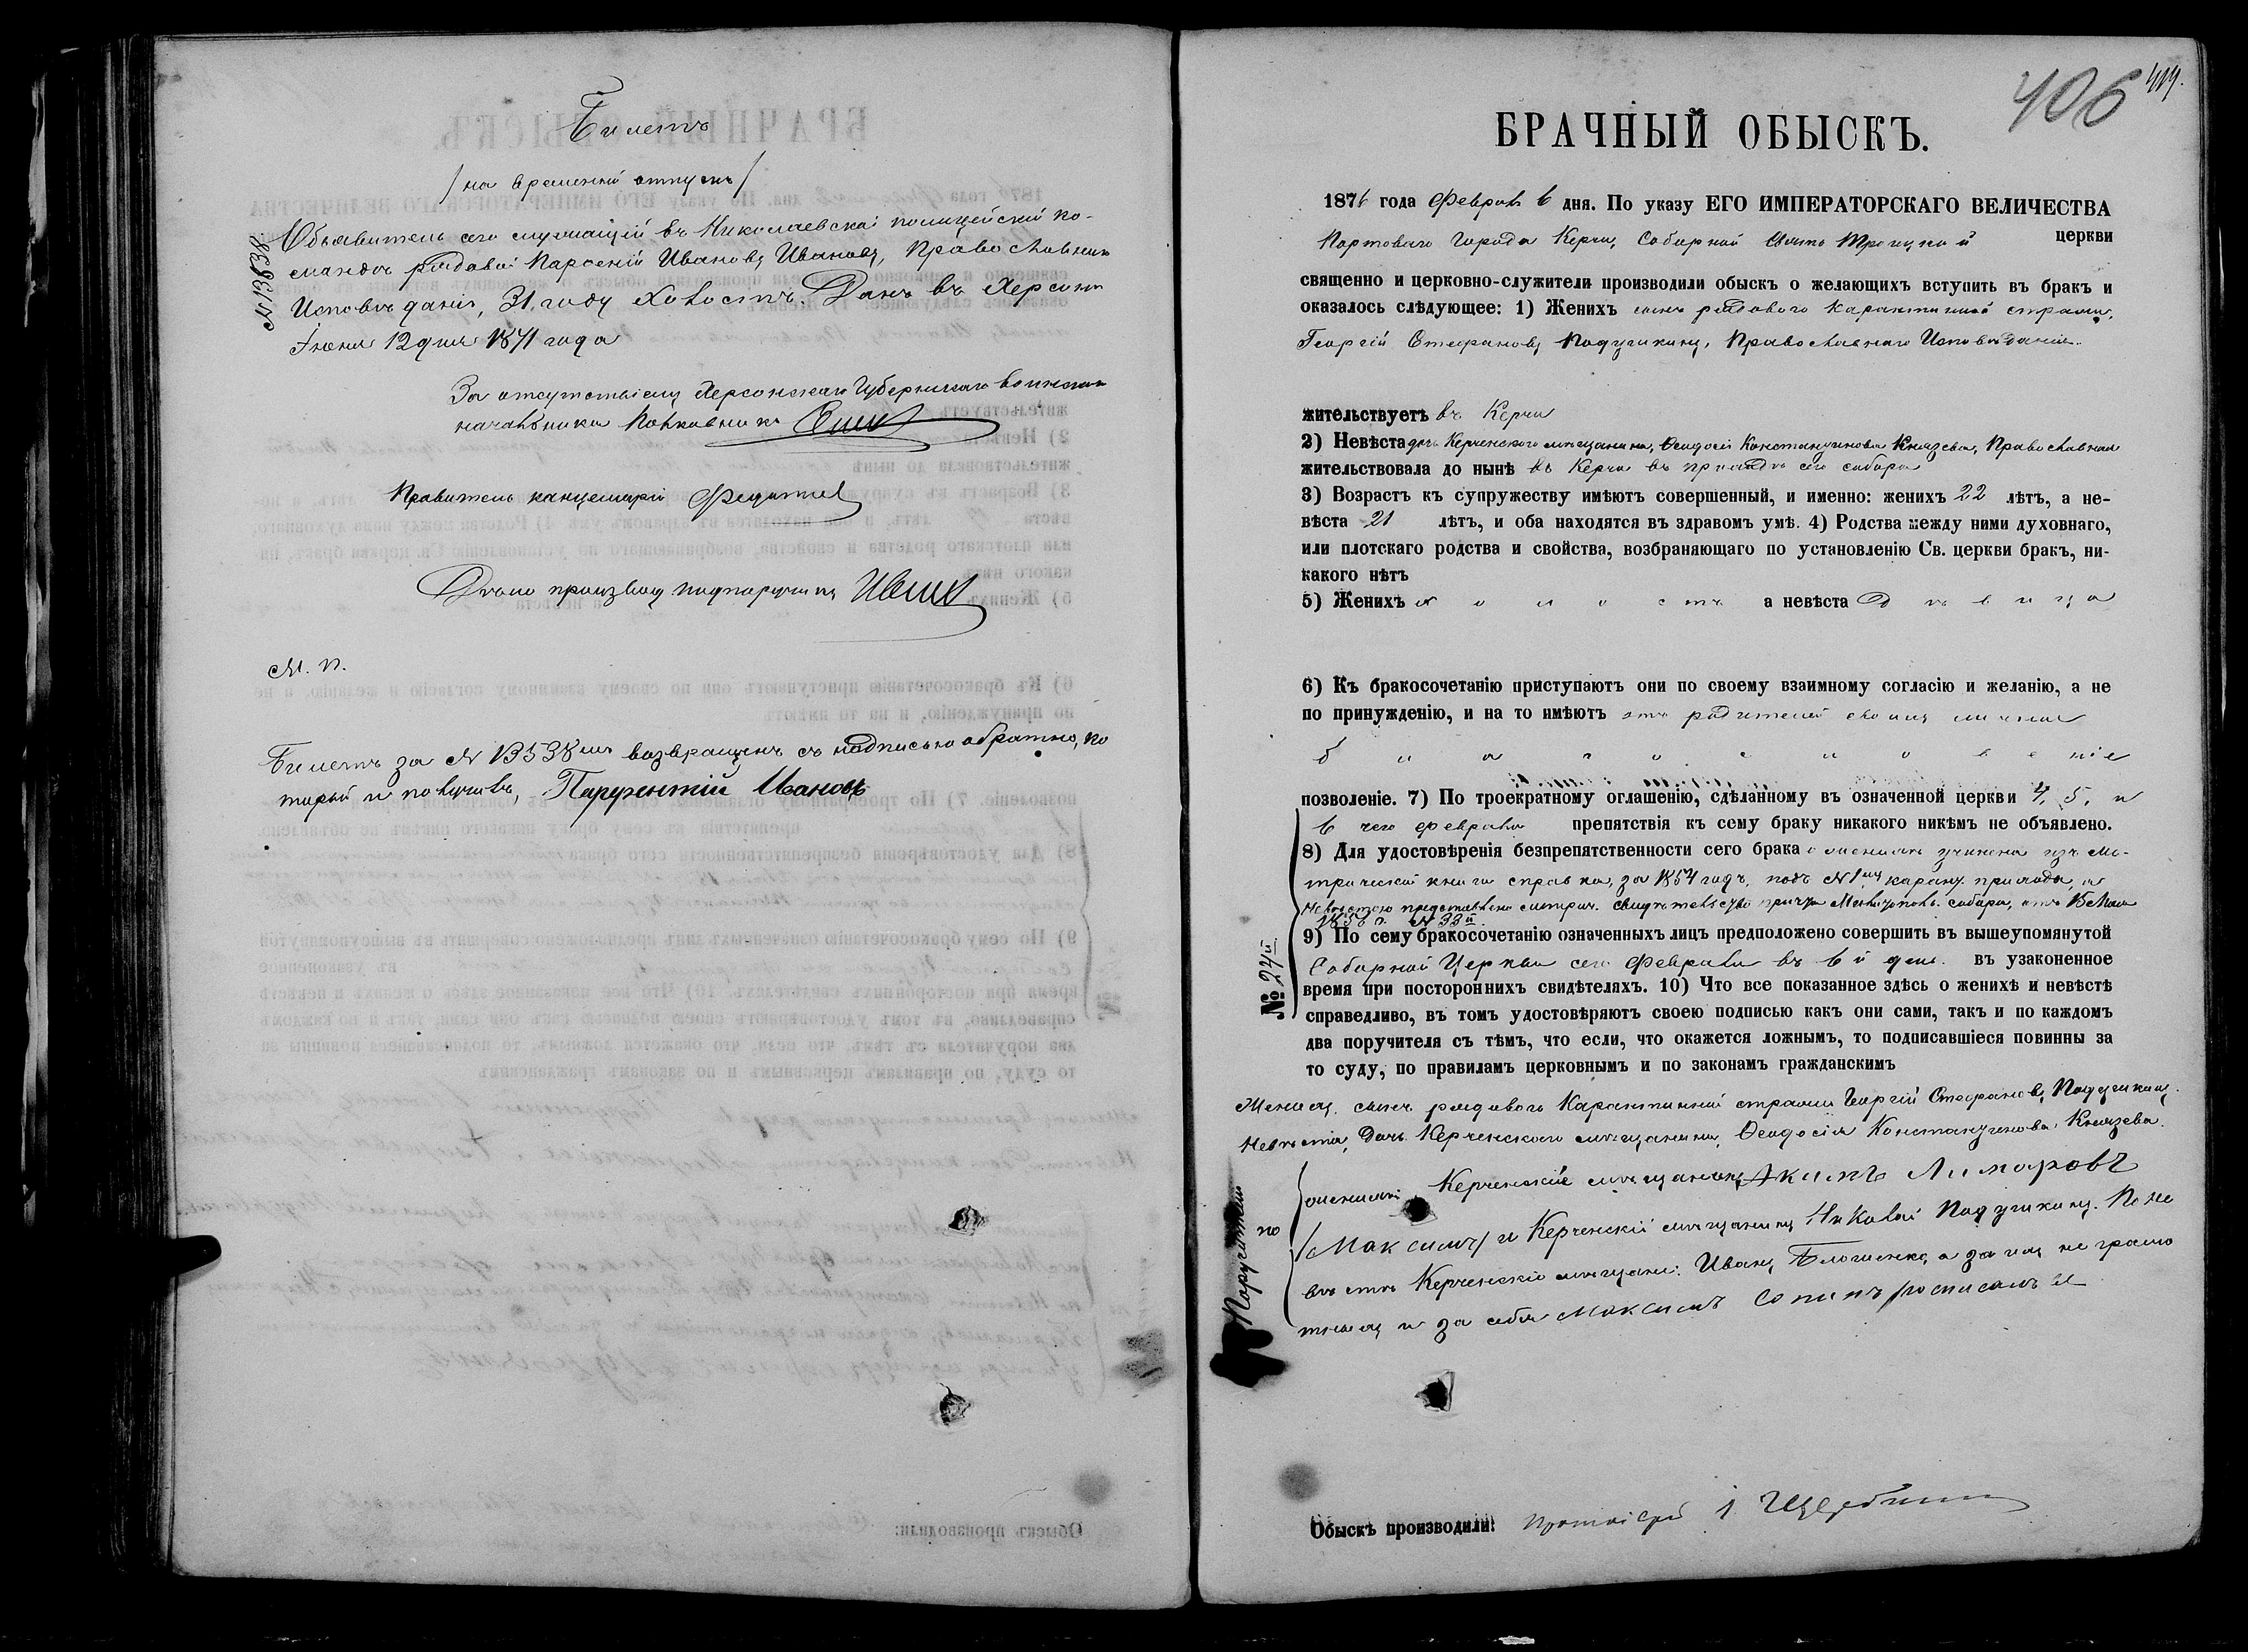 Билетъ
/на временный отпускъ/
№ 13538.
Объявитель сего служащій въ Николаевской полицейской ко-
мандѣ рядовой Парѳеній Ивановъ Ивановъ, Православнаго
Исповѣданія, 31 году холостъ. Данъ въ Херсонѣ
Іюня 12 дня 1871 года
За отсутствіемъ Херсонскаго Губернскаго воинскаго
начальника Полковникъ
Правитель канцеляріи
Дѣлопроизвод. подпоручикъ
М. П.
Билетъ за № 13538мъ возвращенъ съ надписью обратно, ко
торый и получилъ, Парфентій Ивановъ
406 414.
БРАЧНЫЙ ОБЫСКЪ.
1876 года Февраля 6 дня. По указу ЕГО ИМПЕРАТОРСКАГО ВЕЛИЧЕСТВА
Портоваго Города Керчи, Соборной Свято Троицкой церкви
священно и церковно-служители производили обыскъ о желающихъ вступить въ бракъ и
оказалось слѣдующее: 1) Женихъ сынъ рядоваго Карантинной стражи,
Георгій Стефановъ Подушкинъ, Православнаго Исповѣданія.
жительствуетъ въ Керчи
2) Невѣста дочь Керченскаго мѣщанина, Ѳеодосія Константинова Князева, Православная
жительствовала до нынѣ въ Керчи въ приходѣ сего собора
3) Возрастъ къ супружеству имѣютъ совершенный, и именно: женихъ 22 лѣтъ, а не-
вѣста 21 лѣтъ, и оба находятся въ здравомъ умѣ. 4) Родства между ними духовнаго,
или плотскаго родства и свойства, возбраняющаго по установленію Св. церкви бракъ, ни-
какого нѣтъ
5) Женихъ холостъ а невѣста Дѣвица
6) Къ бракосочетанію приступаютъ они по своему взаимному согласію и желанію, а не
по принужденію, и на то имѣютъ отъ родителей своихъ личное
благословеніе
позволеніе. 7) По троекратному оглашенію, сдѣланному въ означенной церкви 4, 5, и
6 чего февраля препятствія къ сему браку никакого никѣмъ не объявлено.
8) Для удостовѣренія безпрепятственности сего брака о женихѣ учинена изъ Ме-
трической книги справка, за 1854 годъ, подъ № 1мъ карант. прихода, а
Невѣстою представлено метрич. свидѣтельство причта собора, отъ 15 Мая
№ 33й
9) По сему бракосочетанію означенныхъ лицъ предположено совершить въ вышеупомянутой
№ 24й
Соборной Церкви сего Февраля въ 6й день. въ узаконенное
время при постороннихъ свидѣтеляхъ. 10) Что все показанное здѣсь о женихѣ и невѣстѣ
справедливо, въ томъ удостовѣряютъ своею подписью какъ они сами, такъ и по каждомъ
два поручителя съ тѣмъ, что если, что окажется ложнымъ, то подписавшіеся повинны за
то суду, по правиламъ церковнымъ и по законамъ гражданскимъ
Женихъ, сынъ рядоваго Карантинной стражи Георгій Стефановъ Подушкинъ.
Невѣста, Дочь Керченскаго мѣщанина, Ѳеодосія Константинова Князева.
Поручители
по женихѣ Керченскій мѣщанинъ Акимъ Лимаровъ
/Максимъ/ и Керченскій мѣщанинъ Николай Подушкинъ. По не
вѣстѣ Керченскіе мѣщане: Иванъ а за ихъ не грамо
тныхъ и за себя Максимъ росписался
Обыскъ производили: протоіерей І.